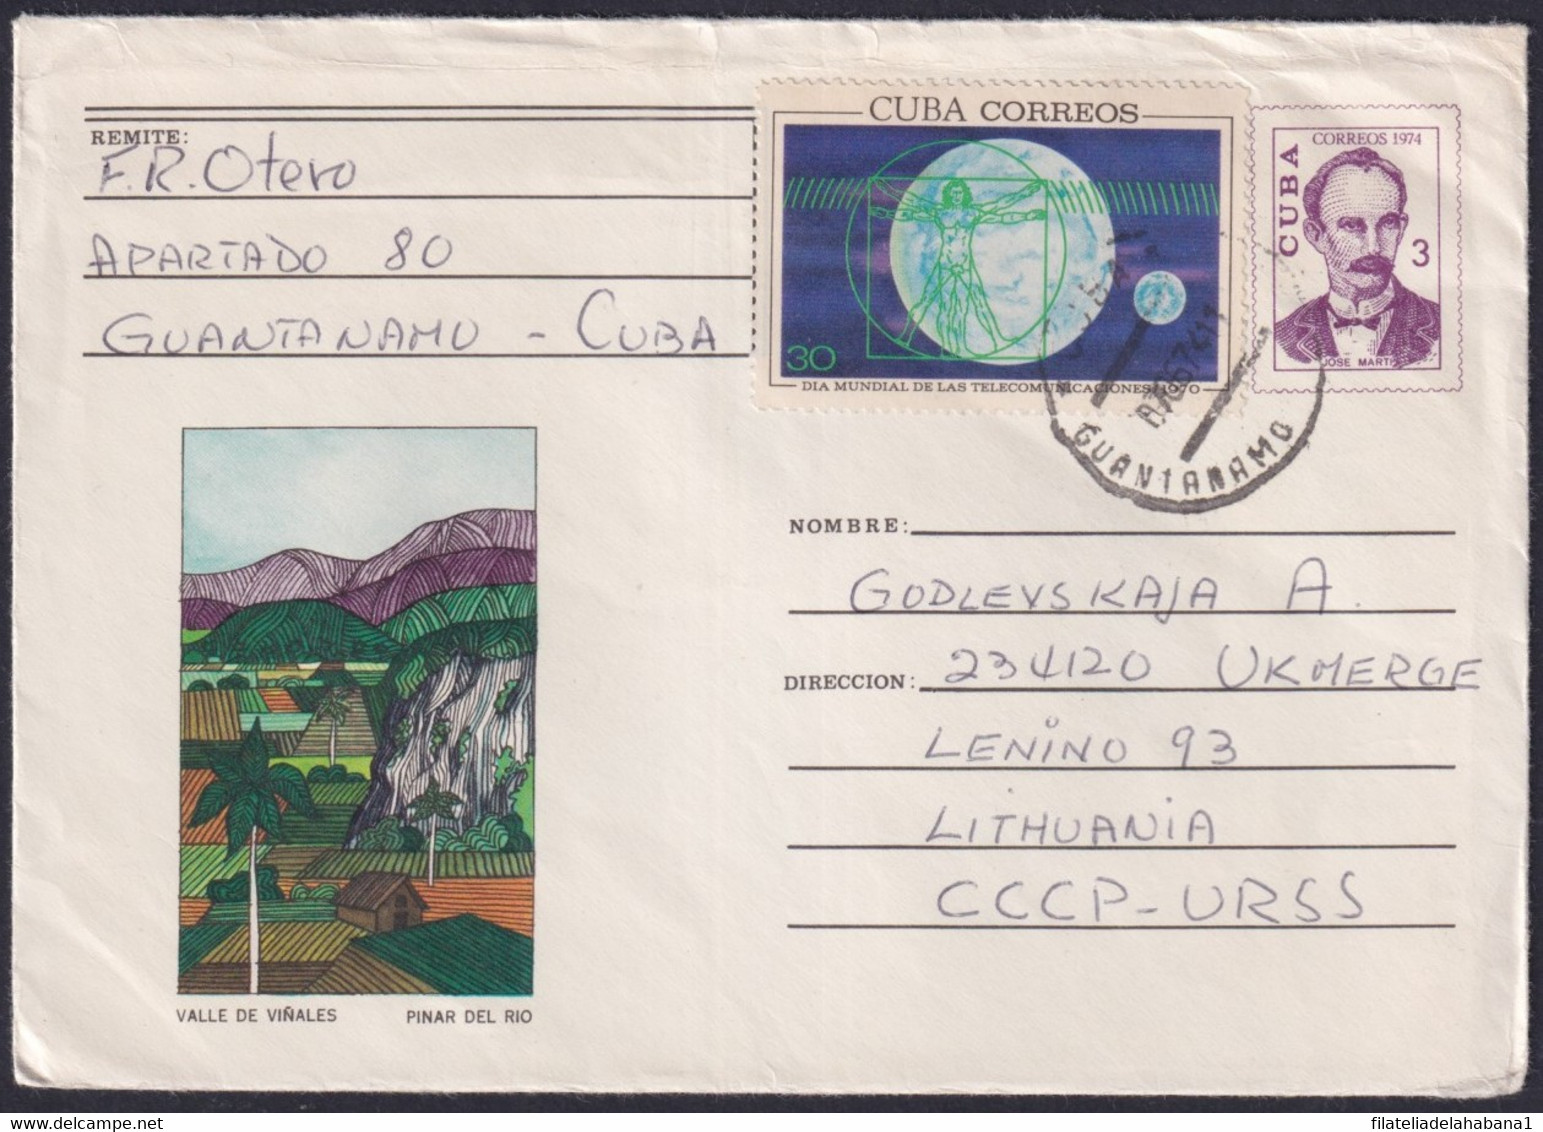 REMITE:
F.R. Otero
APARTADO 80
GUANTANAMO - CUBA
CUBA CORREOS
30
DIA MUNDIAL DE LAS TELECOMUNICACIONES 1970
CORREOS 1974
CUBA
3
JOSE MARTI
GUANTANAMO
NOMBRE:
GODLEVSKAJA A.
DIRECCION: 234120 UKMERGE
LENINO 93
LITHUANIA
CCCP-URSS
VALLE DE VIÑALES PINAR DEL RIO
filateliadelahabana1